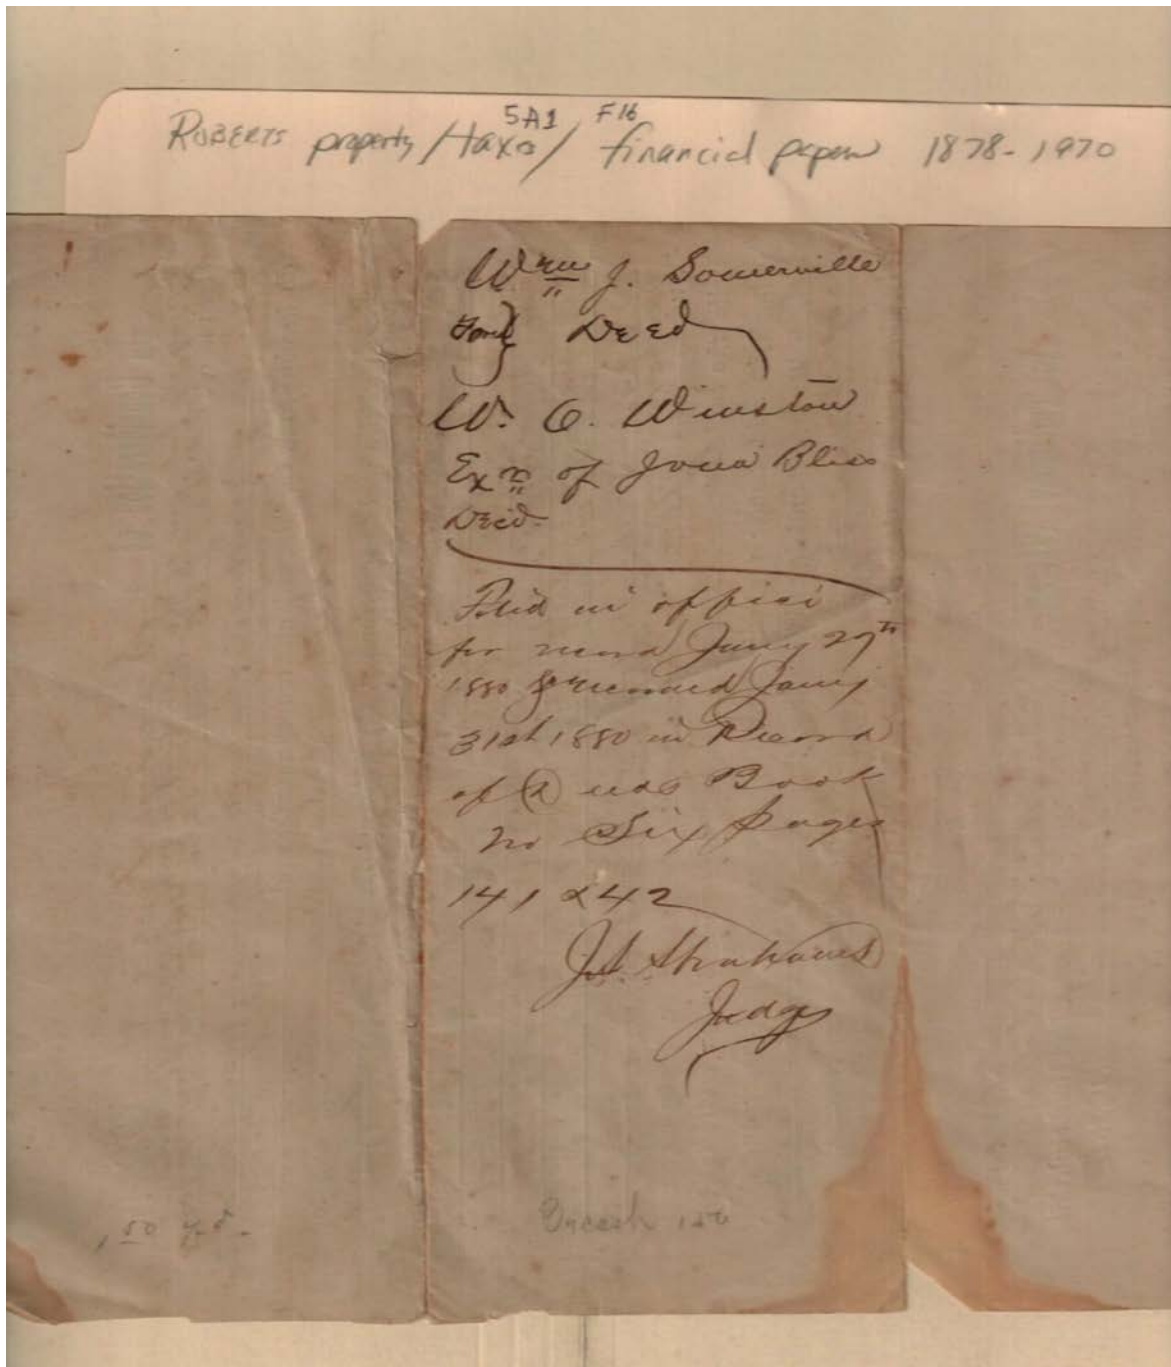 5A1 F16
ROBERTS property/taxes/ financial papers 1878-1970
Wm J. Somerville
Deed
W. O. Winston
Exr of Jona Bliss
Decd.
Filed in office
for record Jany 29th
1880 & recorded Jany
31st 1880 in Record
of Deeds Book
No Six pages
141 & 42
Judge
150
, 50 yd.